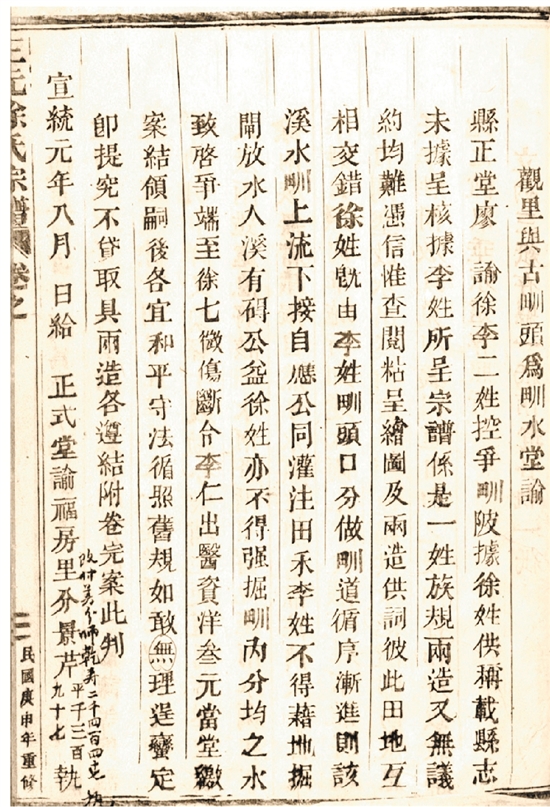 觀里與古甽頭爲甽水堂諭
縣正堂廖 諭徐李二姓控爭甽陂據徐姓供稱載縣志
未據呈核據李姓所呈宗譜係是一姓族規兩造又無議
約均難憑信惟查閱粘呈繪圖及兩造供詞彼此田地互
相交錯徐姓旣由李姓甽頭口分做甽道循序漸進則該
溪水甽上流下接自應公同灌注田禾李姓不得藉地掘
開放水人溪有碍公益徐姓亦不得强掘甽內分均之水
致啓爭端至徐七微傷斷令李仁出醫資洋叁元當堂繳
案結領嗣後各宜和平守法循照舊規如敢無理逞蠻定
卽提究不貸取具兩造各遵結附卷完案此判
宣統元年八月 日給 正式堂諭福房里分景芹九十七 執
改付美分師乾壽二千四百四 平千三百
三元徐氏宗譜 卷之
民國庚申年重修